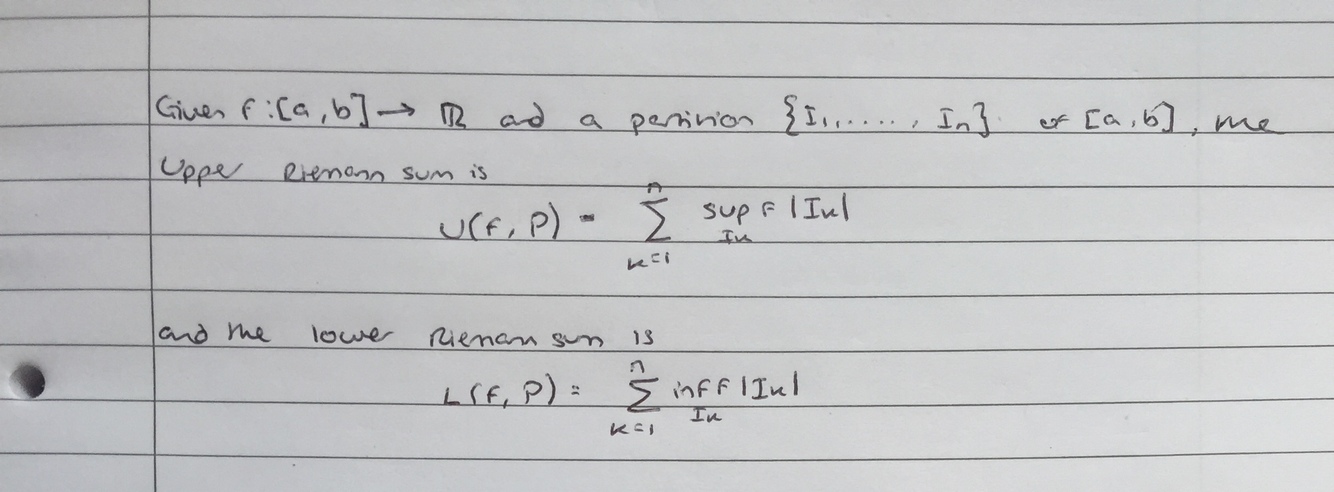 Given f : [a, b] → ℝ and a partition {I₁, ....., Iₙ} of [a, b], the
Upper Riemann sum is
U(f, P) = ∑ₖ₌₁ⁿ sup_{Iₖ} f |Iₖ|
and the lower Riemann sum is
L(f, P) = ∑ₖ₌₁ⁿ inf_{Iₖ} f |Iₖ|